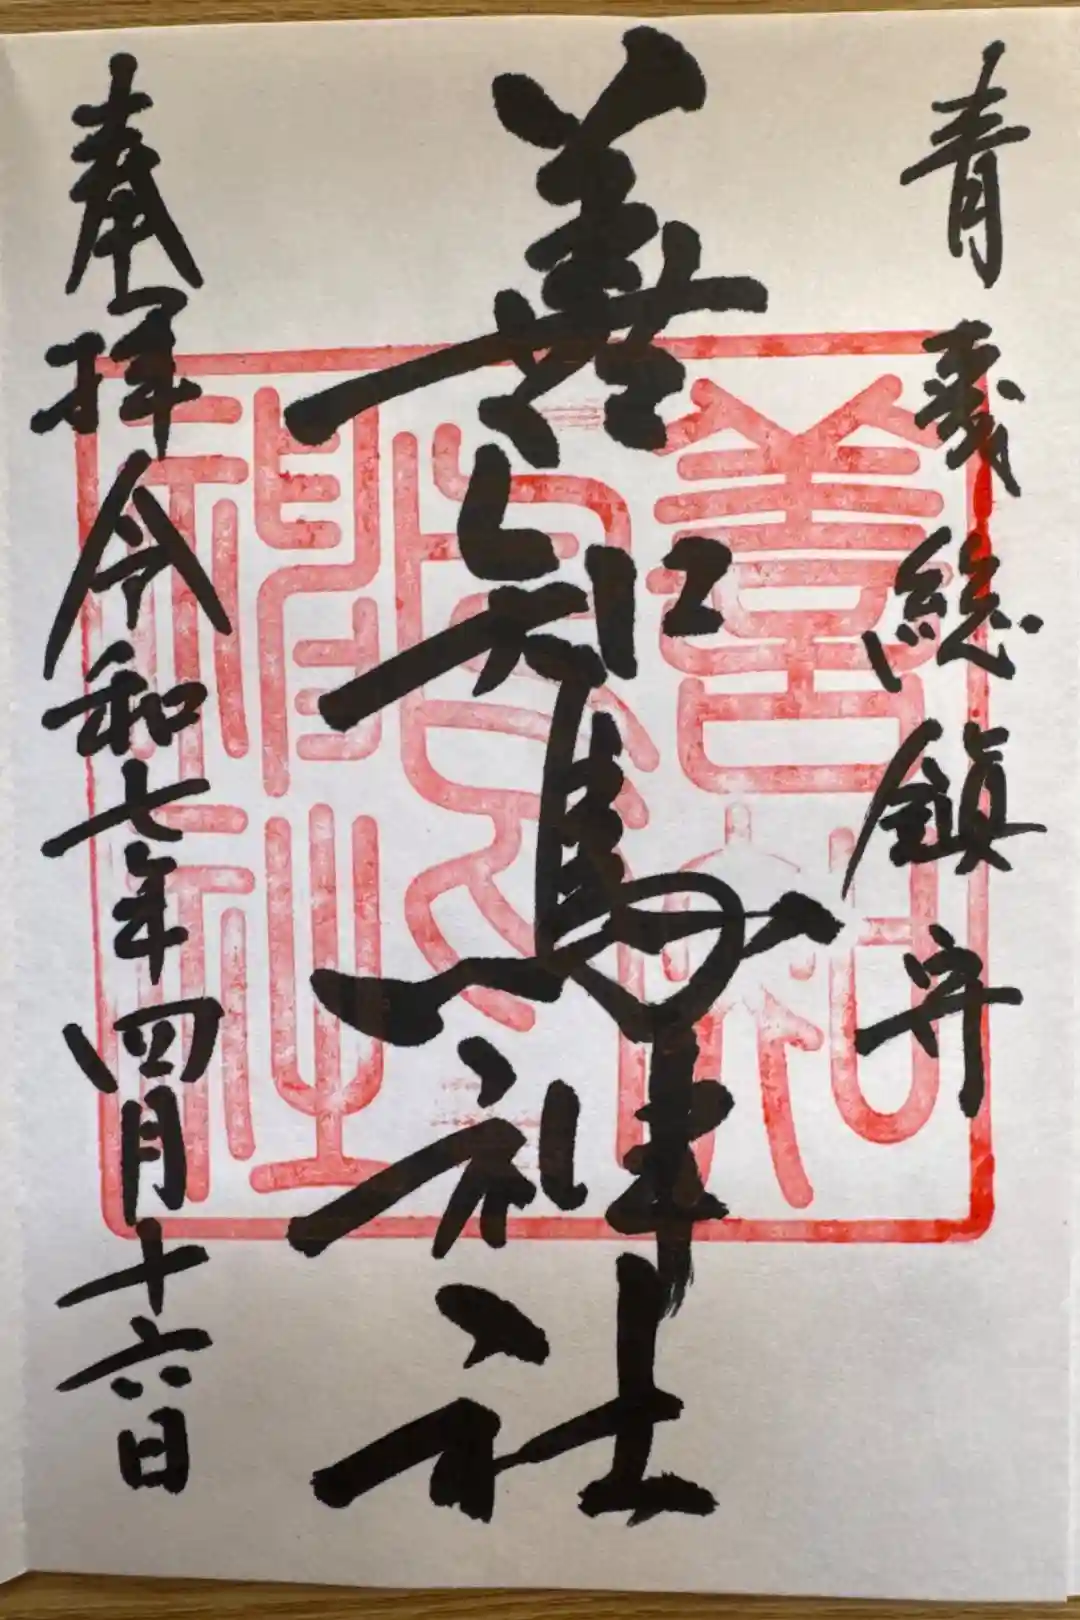 青森総鎮守
善知鳥神社
奉拝令和七年四月十六日
善知鳥神社